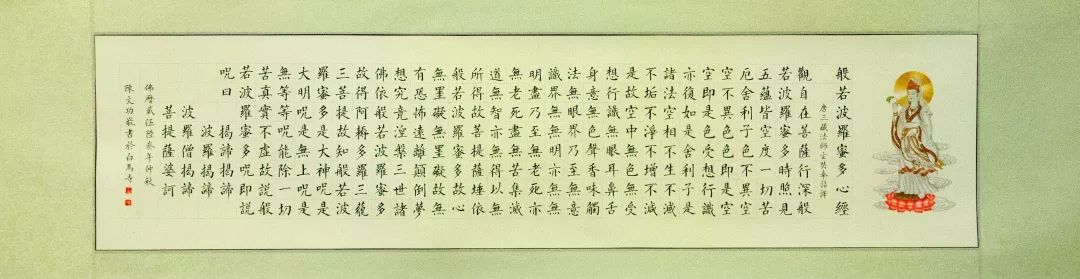 般若波羅蜜多心經
唐三藏法師玄奘奉詔譯
觀自在菩薩行深般
若波羅蜜多時照見
五蘊皆空度一切苦
厄舍利子色不異空
空不異色色即是空
空即是色受想行識
亦復如是舍利子是
諸法空相不生不滅
不垢不淨不增不減
是故空中無色無受
想行識無眼耳鼻舌
身意無色聲香味觸
法無眼界乃至無意
識界無無明亦無無
明盡乃至無老死亦
無老死盡無苦集滅
道無智亦無得以無
所得故菩提薩埵依
般若波羅蜜多故心
無罣礙無罣礙故無
有恐怖遠離顛倒夢
想究竟涅槃三世諸
佛依般若波羅蜜多
故得阿耨多羅三藐
三菩提故知般若波
羅蜜多是大神呪是
大明呪是無上呪是
無等等呪能除一切
苦真實不虛故說般
若波羅蜜多呪即說
呪曰 揭諦揭諦
波羅揭諦
波羅僧揭諦
菩提薩婆訶
佛曆貳伍陸叁年仲秋
陳文功敬書於白馬寺